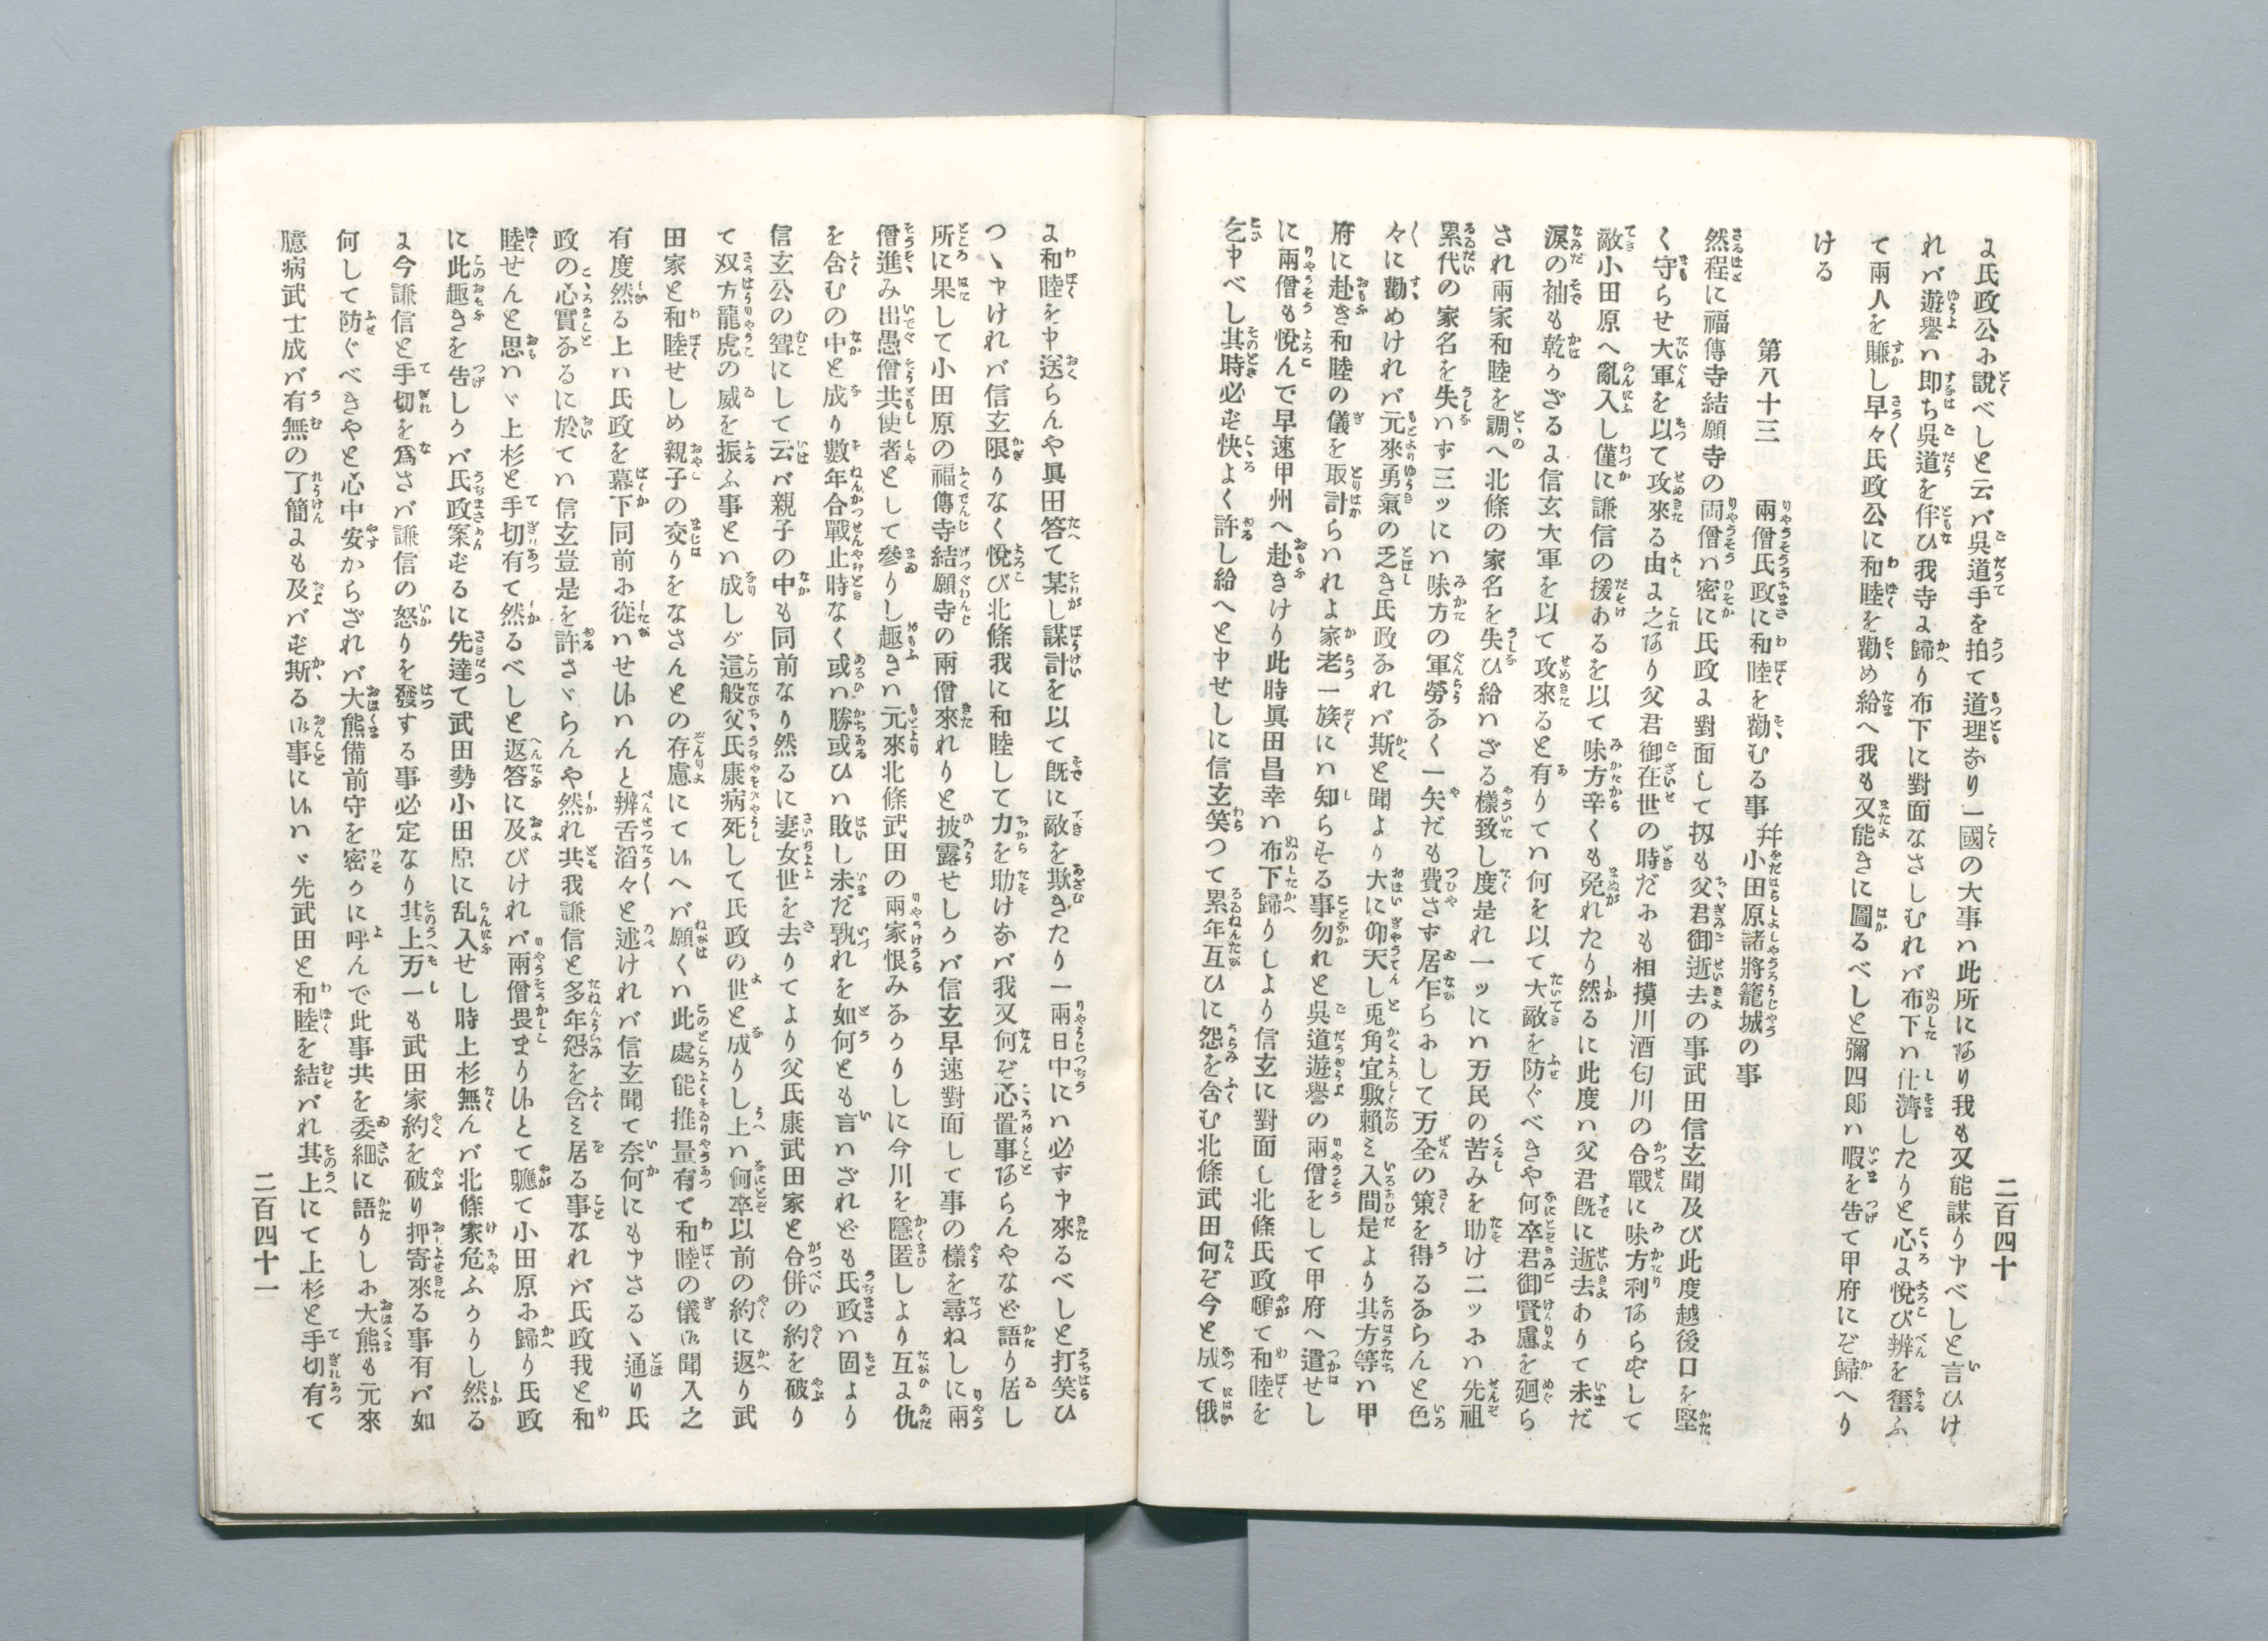 二百四十
に氏政公に説べしと云ば呉道手を拍て道理なり一國の大事は此所にあり我も又能謀り申べしと言ひけ
れば遊譽は即ち呉道を伴ひ我寺に歸り布下に對面なさしむれば布下は仕濟したりと心に悅び辨を奮ふ
て兩人を賺し早々氏政公に和睦を勸め給へ我も又能きに圖るべしと彌四郎は暇を告て甲府にぞ歸へり
ける
第八十三　兩僧氏政に和睦を勸むる事幷小田原諸將籠城の事
然程に福傳寺結願寺の両僧は密に氏政に對面して扨も父君御逝去の事武田信玄聞及び此度越後口を堅
く守らせ大軍を以て攻來る由に之あり父君御在世の時だにも相摸川酒匂川の合戰に味方利あらずして
敵小田原へ亂入し僅に謙信の援あるを以て味方辛くも免れたり然るに此度は父君既に逝去ありて未だ
淚の袖も乾かざるに信玄大軍を以て攻來ると有りては何を以て大敵を防ぐべきや何卒君御賢慮を廻ら
され兩家和睦を調へ北條の家名を失ひ給はざる樣致し度是れ一ッには万民の苦みを助け二ッには先祖
累代の家名を失はず三ッには味方の軍勞なく一矢だも費さず居乍らにして万全の策を得るならんと色
々に勸めければ元來勇氣の乏き氏政なれば斯と聞より大に仰天し兎角宜敷賴ミ入間是より其方等は甲
府に赴き和睦の儀を取計らはれよ家老一族には知らせる事勿れと呉道遊譽の兩僧をして甲府へ遣せし
に兩僧も悅んで早速甲州へ赴きけり此時眞田昌幸は布下歸りしより信玄に對面し北條氏政頓て和睦を
乞申べし其時必ず快よく許し給へと申せしに信玄笑つて累年互ひに怨を含む北條武田何ぞ今と成て俄
に和睦を申送らんや眞田答て某し謀計を以て既に敵を欺きたり一兩日中には必ず申來るべしと打笑ひ
つゝ申ければ信玄限りなく悅び北條我に和睦して力を助けなば我又何ぞ心置事あらんやなど語り居し
所に果して小田原の福傳寺結願寺の兩僧來れりと披露せしかば信玄早速對面して事の樣を尋ねしに兩
僧進み出愚僧共使者として參りし趣きは元來北條武田の兩家恨みなかりしに今川を隱匿しより互に仇
を含むの中と成り數年合戰止時なく或は勝或ひは敗し未だ孰れを如何とも言はざれども氏政は固より
信玄公の聟にして云ば親子の中も同前なり然るに妻女世を去りてより父氏康武田家と合併の約を破り
て双方龍虎の威を振ふ事とは成しが這般父氏康病死して氏政の世と成りし上は何卒以前の約に返り武
田家と和睦せしめ親子の交りをなさんとの存慮にて候へば願くは此處能推量有て和睦の儀御聞入之
有度然る上は氏政を幕下同前に從はせ候はんと辨舌滔々と述ければ信玄聞て奈何にも申さるゝ通り氏
政の心實なるに於ては信玄豈是を許さゞらんや然れ共我謙信と多年怨を含ミ居る事なれば氏政我と和
睦せんと思はゞ上杉と手切有て然るべしと返答に及びければ兩僧畏まり候とて軈て小田原に歸り氏政
に此趣きを告しかば氏政案ずるに先達て武田勢小田原に乱入せし時上杉無んば北條家危ふかりし然る
に今謙信と手切を爲さば謙信の怒りを發する事必定なり其上万一も武田家約を破り押寄來る事有ば如
何して防ぐべきやと心中安からざれば大熊備前守を密かに呼んで此事共を委細に語りしに大熊も元來
臆病武士成ば有無の了簡にも及ばず斯る御事に候はゞ先武田と和睦を結ばれ其上にて上杉と手切有て
二百四十一